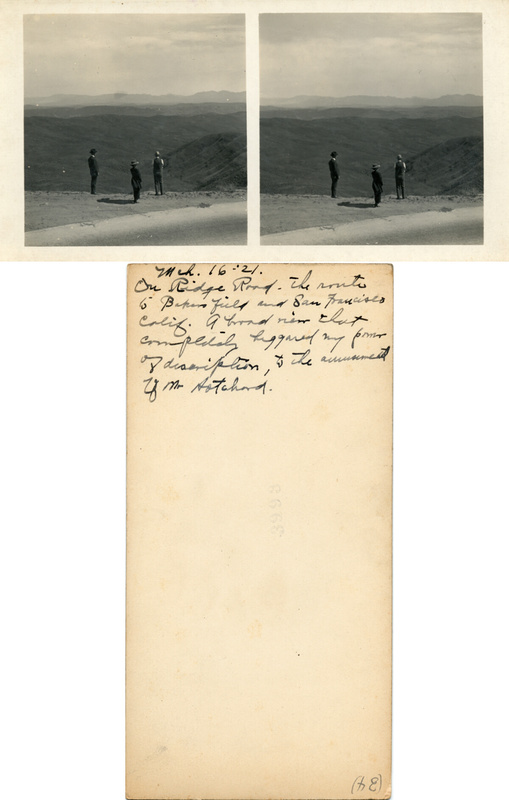 Mch. 16-21.
On Ridge Road. The route
to Bakersfield and San Francisco
Calif. A broad view that
completely beggared my power
of description, to the amusement
of Mr
(34)